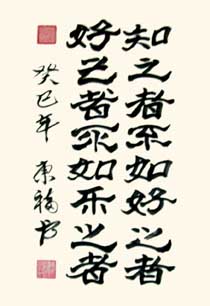 知之者不如好之者
好之者不如乐之者
癸巳年 福书